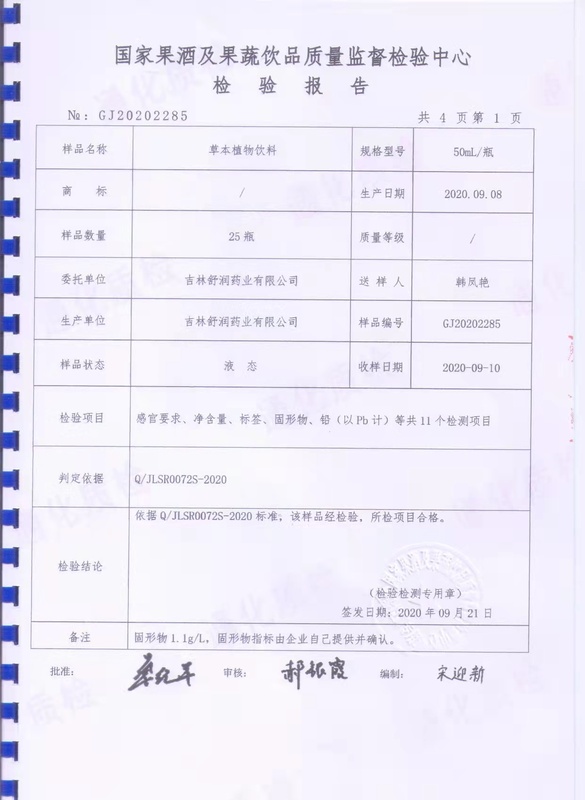 国家果酒及果蔬饮品质量监督检验中心
检 验 报 告
№:GJ20202285 共 4 页第 1 页
样品名称 草本植物饮料 规格型号 50mL/瓶
商 标 / 生产日期 2020.09.08
样品数量 25瓶 质量等级 /
委托单位 吉林舒润药业有限公司 送 样 人 韩凤艳
生产单位 吉林舒润药业有限公司 样品编号 GJ20202285
样品状态 液 态 收样日期 2020-09-10
检验项目 感官要求、净含量、标签、固形物、铅（以Pb计）等共11个检测项目
判定依据 Q/JLSR0072S-2020
检验结论 依据Q/JLSR0072S-2020标准，该样品经检验，所检项目合格。
（检验检测专用章）
签发日期：2020年09月21日
备注 固形物1.1g/L，固形物指标由企业自己提供并确认。
批准： 审核： 郝银霞 编制： 宋迎新
通化质检